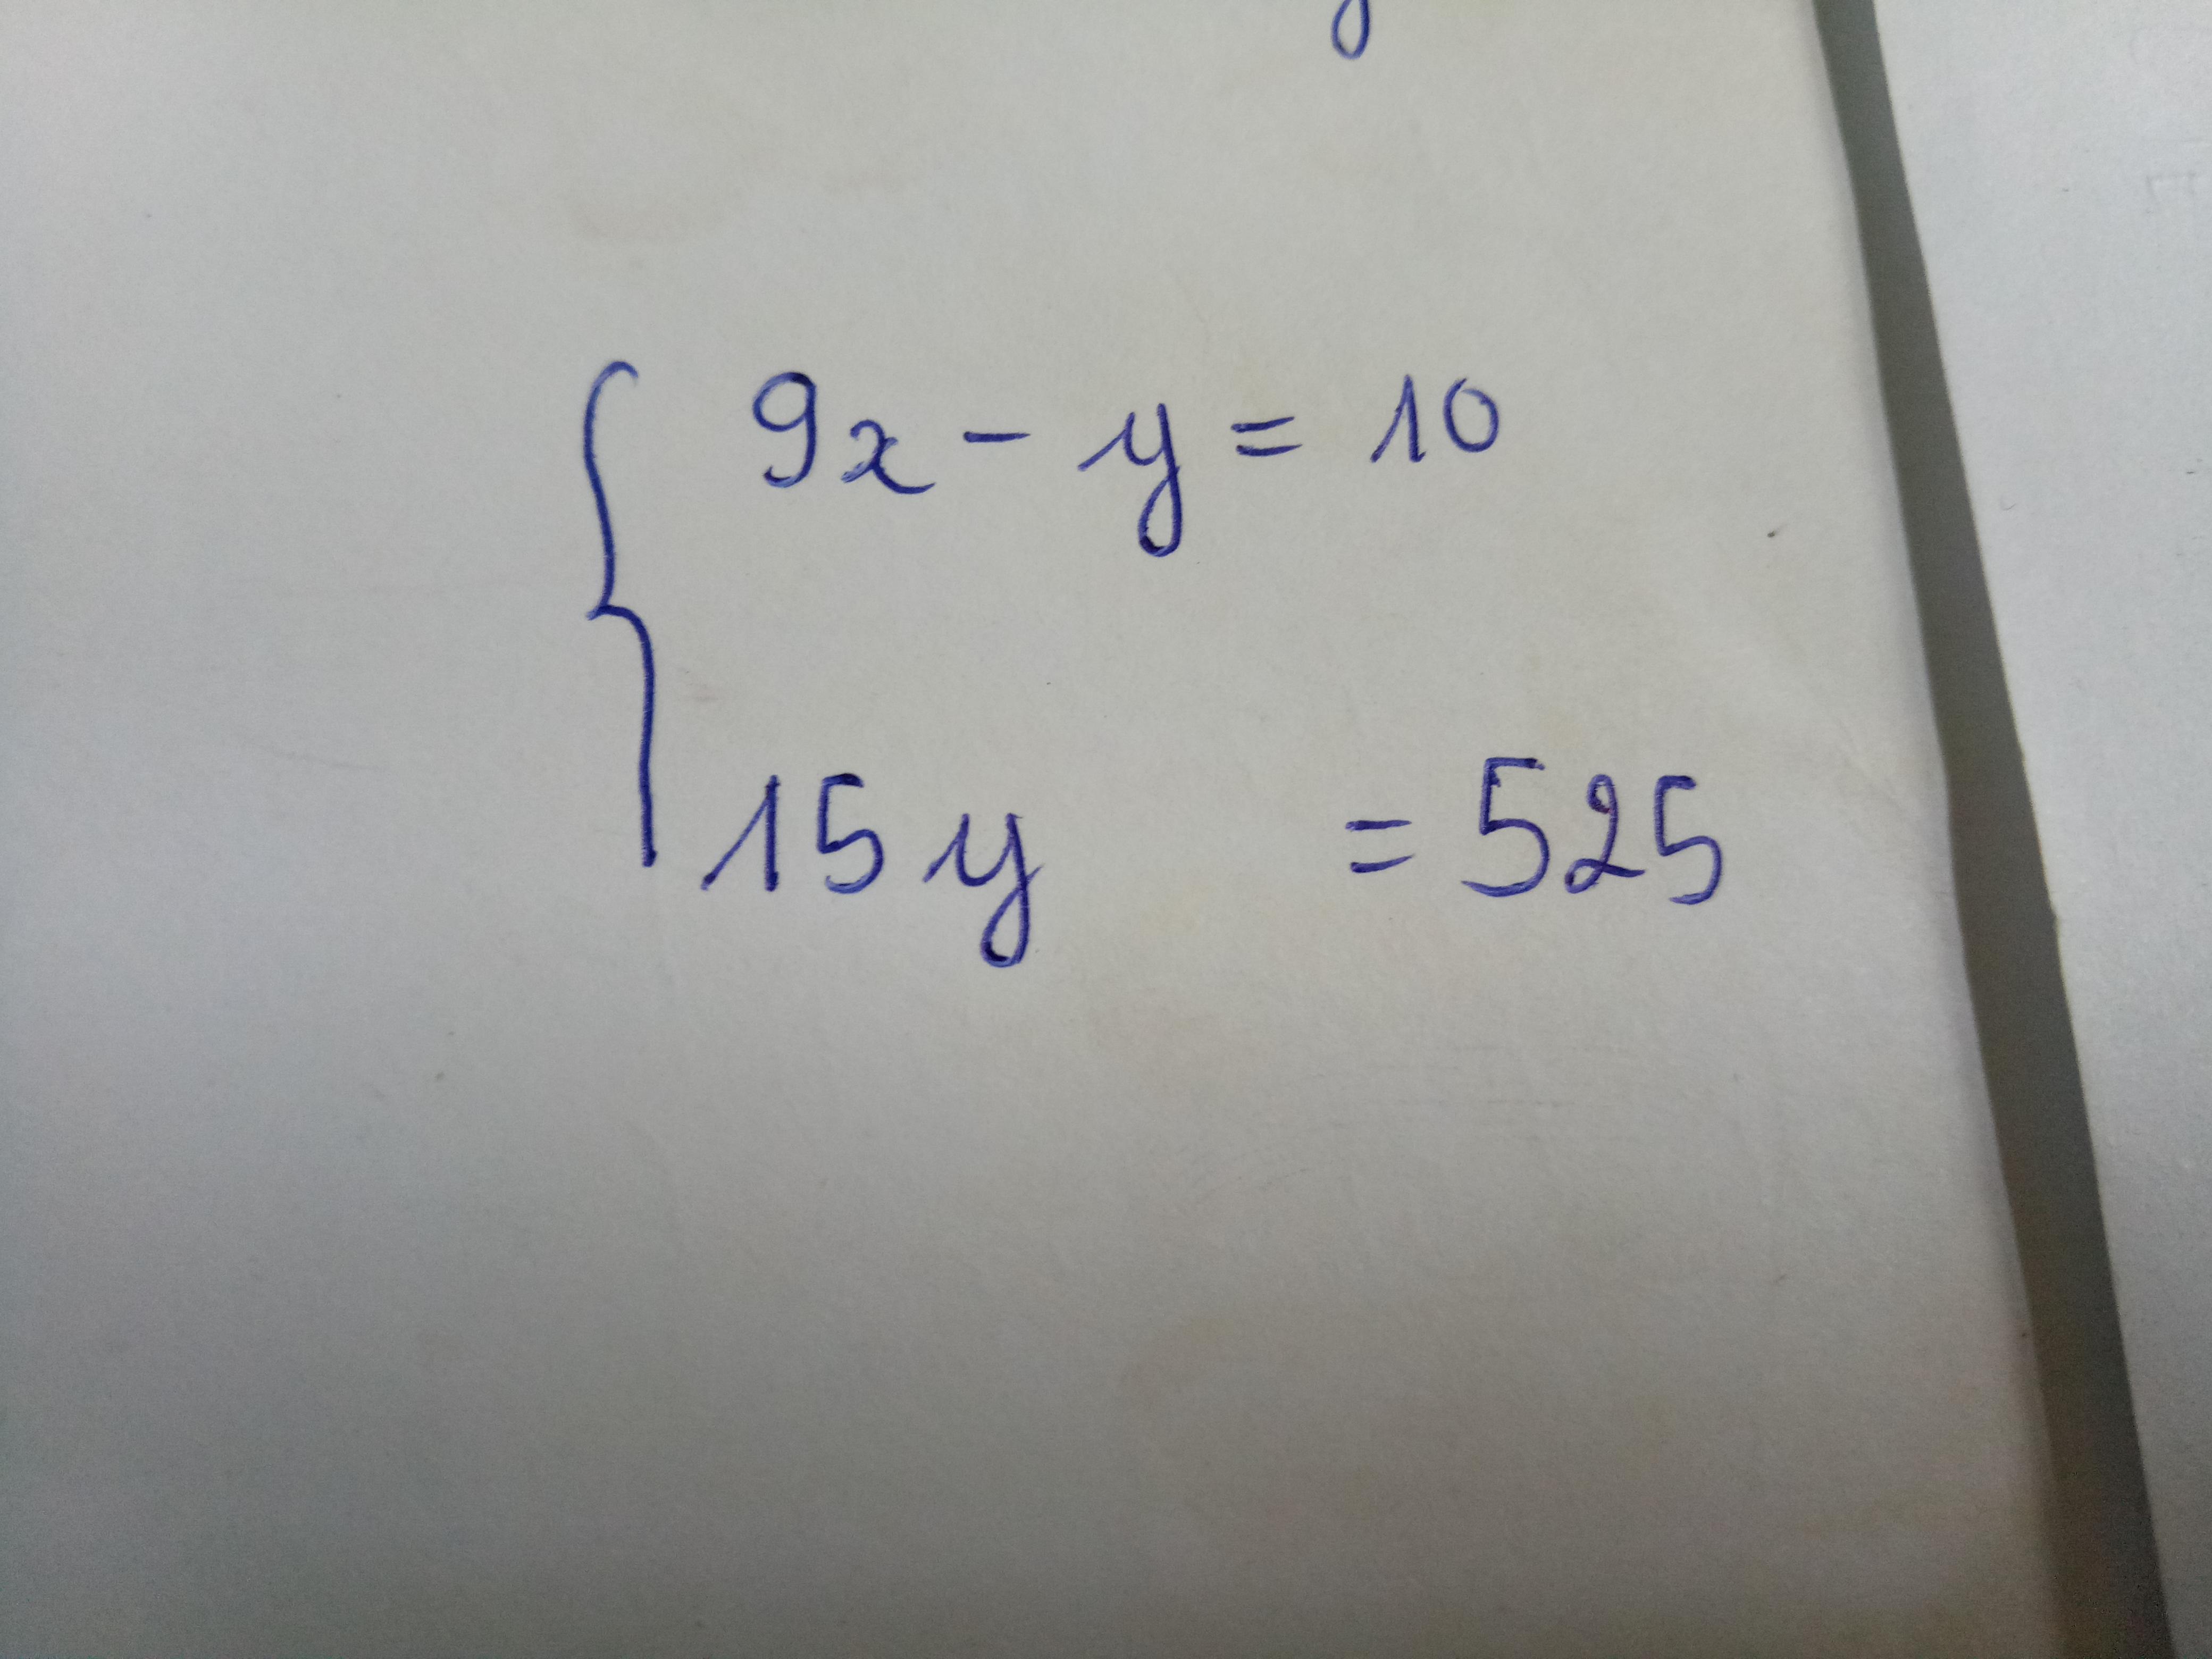 9x - y = 10
15y = 525